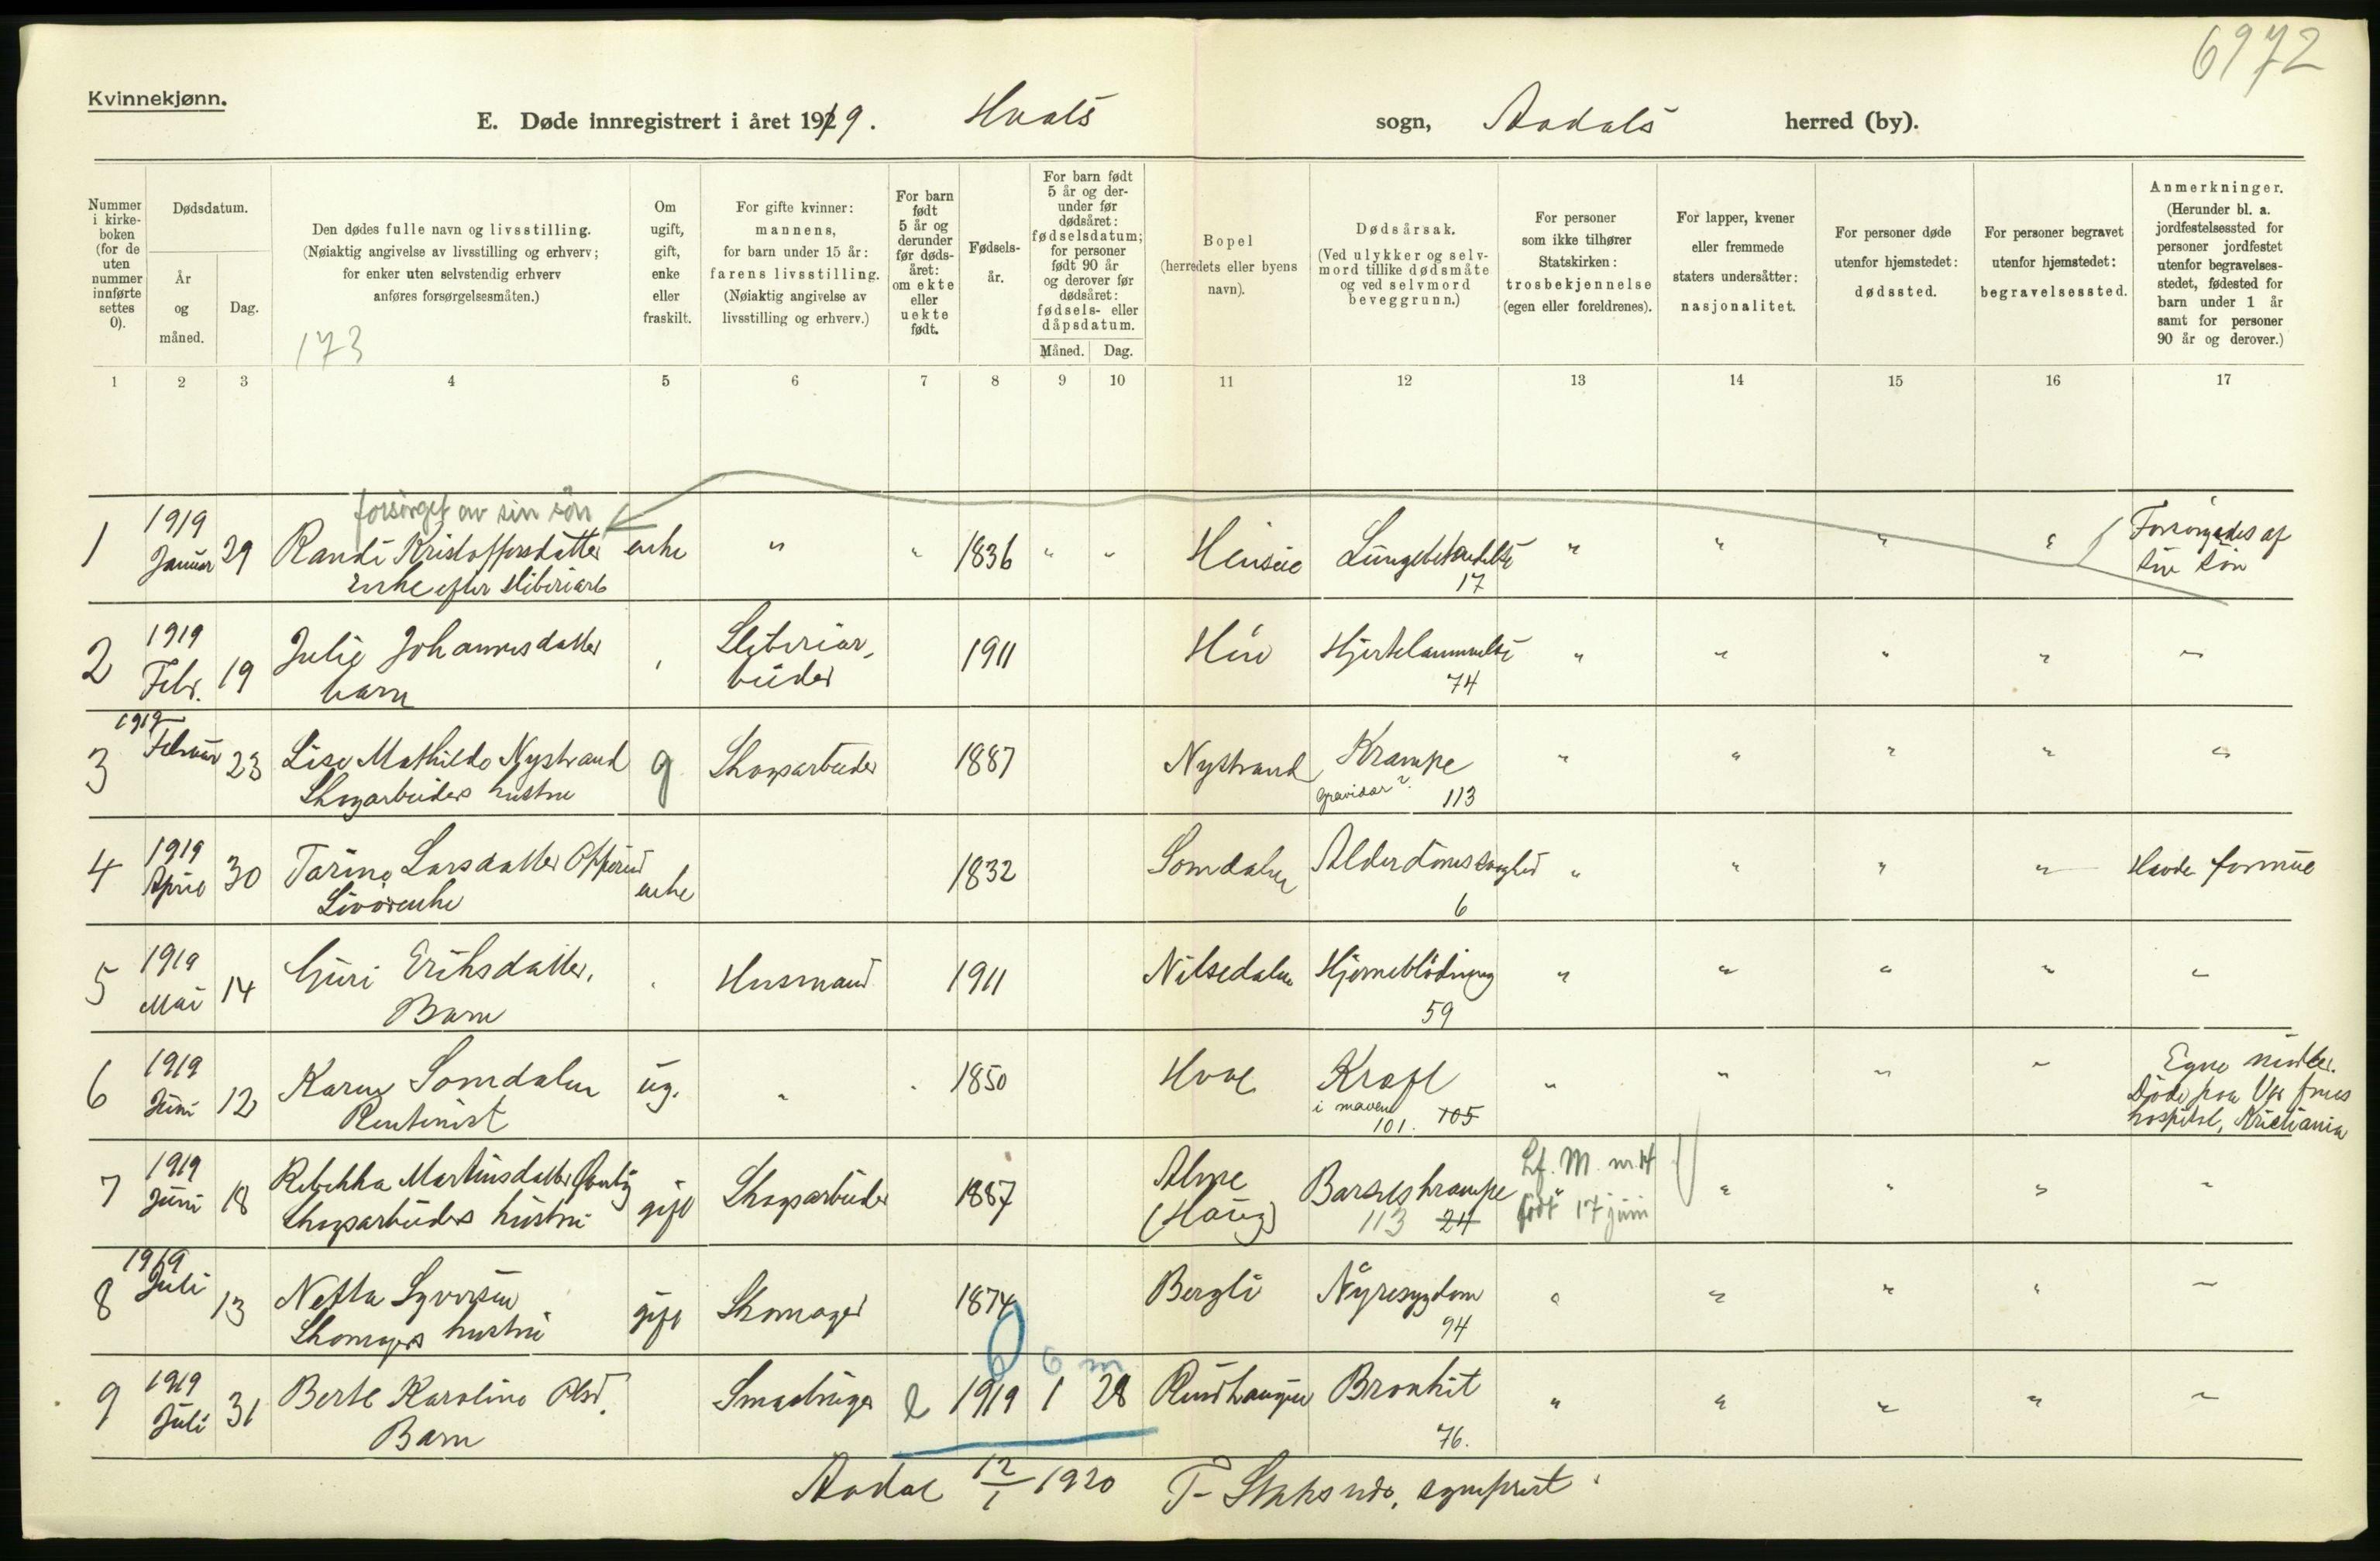 6972
Kvinnekjønn.
E. Døde innregistrert i året 1919. Hvals sogn, Aadals herred (by).
Nummer i kirke- boken (for de uten nummer innførte settes 0).
Dødsdatum.
År og måned.
Dag.
Den dødes fulle navn og livsstilling.
(Nøiaktig angivelse av livsstilling og erhverv;
for enker uten selvstendig erhverv
anføres forsørgelsesmåten.)
173
Om ugift, gift, enke eller fraskilt.
For gifte kvinner:
mannens,
for barn under 15 år:
farens livsstilling.
(Nøiaktig angivelse av
livsstilling og erhverv.)
For barn født 5 år og derunder før døds- året: om ekte eller uekte født.
Fødsels- år.
For barn født 5 år og der- under før dødsåret: fødselsdatum; for personer født 90 år og derover før dødsåret: fødsels- eller dåpsdatum.
Måned. Dag.
Bopel
(herredets eller byens
navn).
Dødsårsak.
(Ved ulykker og selv-
mord tillike dødsmåte
og ved selvmord
beveggrunn.)
For personer
som ikke tilhører
Statskirken:
trosbekjennelse
(egen eller foreldrenes).
For lapper, kvener
eller fremmede
staters undersåtter:
nasjonalitet.
For personer døde
utenfor hjemstedet:
dødssted.
For personer begravet
utenfor hjemstedet:
begravelsessted.
Anmerkninger.
(Herunder bl. a.
jordfestelsessted for
personer jordfestet
utenfor begravelses-
stedet, fødested for
barn under 1 år
samt for personer
90 år og derover.)
1 2 3 4 5 6 7 8 9 10 11 12 13 14 15 16 17
forsørget av sin søn
1 1919 Januar 29 Randi Kristoffersdatter enke " " 1836 " " Lungebetændelse " " " " Forsørgedes af sin søn
Enke efter sliberiarb 17
2 1919 Febr. 19 Julie Johannesdatter Sliberiar- beider 1911 Hjertelammelse " " " " "
barn 74
3 1919 Februar 23 Lise Mathilde Nystrand g Skogsarbeider 1887 Nystrand Krampe " " " " "
Skogarbeiders hustru gravidar ? 113
4 1919 April 30 Larsdatter enke 1832 Somdalen Alderdomssvaghed " " " " Havde formue
6
5 1919 Mai 14 Guri Eriksdatter, Husmand 1911 Nilsedalen Hjerneblødning " " " " "
Barn 59
6 1919 Juni 12 Karen Somdalen ug. " " 1850 Hval Kræft " " " " Egne midler.
Rentenist i maven 101. 105 Døde paa Vor frues hospital, Kristiania
7 1919 Juni 18 Rebekka Martinsdatter gift Skogsarbeider 1887 (Haug) Barselskrampe Lf. M. nr. 14 " " " "
Skogsarbeiders hustru 113 24 født 17 juni
8 1919 Juli 13 Netta Syversen gift Skomager 1874 Bergli Nyresygdom " " " " "
Skomagers hustru 94
6 m
9 1919 Juli 31 Berte Karoline Olsd. e 1919 1 28 Bronkit " " " " "
Barn 76.
Aadal 12/1 1920 sogneprest